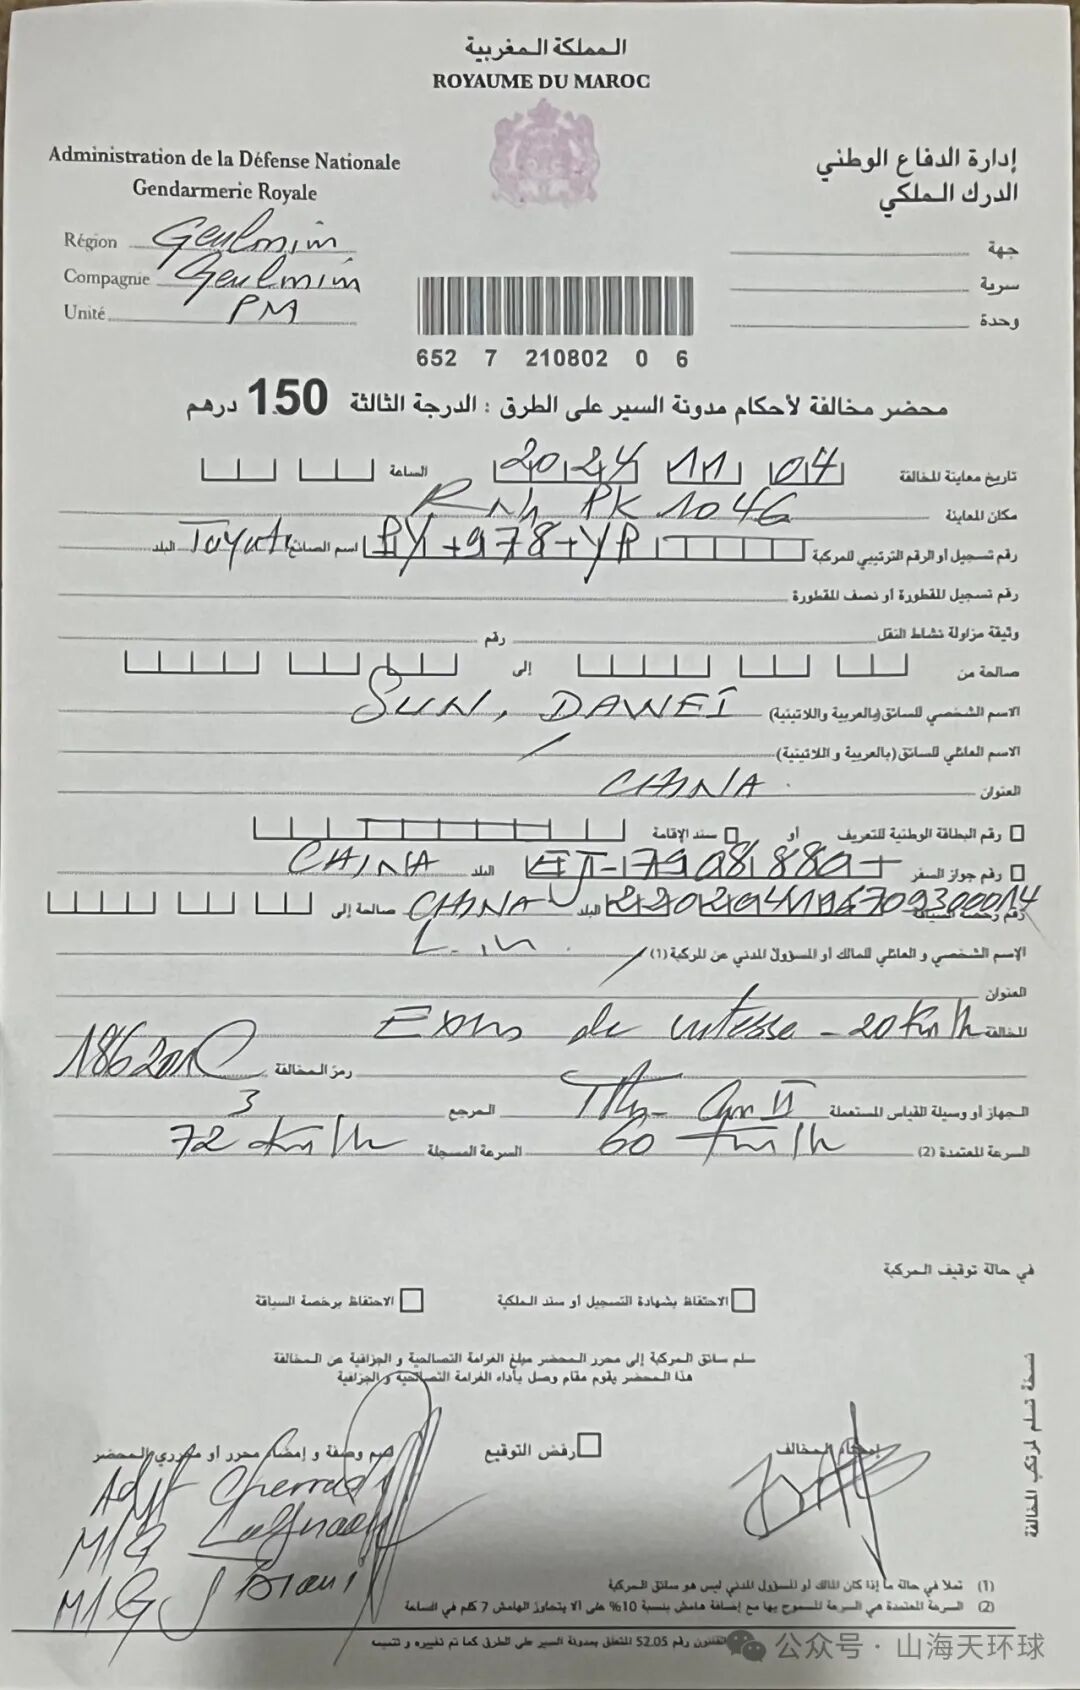 المملكة المغربية
ROYAUME DU MAROC
Administration de la Défense Nationale
Gendarmerie Royale
Région Geulmim
Compagnie Geulmim
Unité PM
إدارة الدفاع الوطني
الدرك الملكي
جهة
سرية
وحدة
652 7 210802 0 6
محضر مخالفة لأحكام مدونة السير على الطرق : الدرجة الثالثة 150 درهم
تاريخ معاينة المخالفة 04 11 2024 الساعة
مكان المعاينة PK 1046
رقم تسجيل أو الرقم الترتيبي للمركبة 978 اسم الصانع البلد
رقم تسجيل المقطورة أو نصف المقطورة
وثيقة مزاولة نشاط النقل رقم
صالحة من إلى
الاسم الشخصي للسائق (بالعربية واللاتينية) SUN, DAWEI
الاسم العائلي للسائق (بالعربية و اللاتينية)
العنوان CHINA
رقم البطاقة الوطنية للتعريف أو سند الإقامة
رقم جواز السفر البلد CHINA
رقم رخصة السياقة البلد CHINA صالحة إلى
الإسم الشخصي و العائلي للمالك أو المسؤول المدني عن المركبة (1)
العنوان
المخالفة de 20 Km/h
رمز المخالفة
الجهاز أو وسيلة القياس المستعملة المرجع 3
السرعة المعتمدة (2) 60 Km/h السرعة المسجلة 72 Km/h
في حالة توقيف المركبة
الاحتفاظ بشهادة التسجيل أو سند الملكية الاحتفاظ برخصة السياقة
سلم سائق المركبة إلى محرر المحضر مبلغ الغرامة التصالحية و الجزافية عن المخالفة
هذا المحضر يقوم مقام وصل بأداء الغرامة التصالحية و الجزافية
إمضاء المخالف رفض التوقيع اسم وصفة و إمضاء محرر أو محرري المحضر
نسخة تسلم لمرتكب المخالفة
(1) تملأ في حالة ما إذا كان المالك أو المسؤول المدني ليس هو سائق المركبة
(2) السرعة المعتمدة هي السرعة المسموح بها مع إضافة هامش بنسبة 10% على ألا يتجاوز الهامش 7 كلم في الساعة
القانون رقم 52.05 المتعلق بمدونة السير على الطرق كما تم تغييره و تتميمه
公众号 · 山海天环球